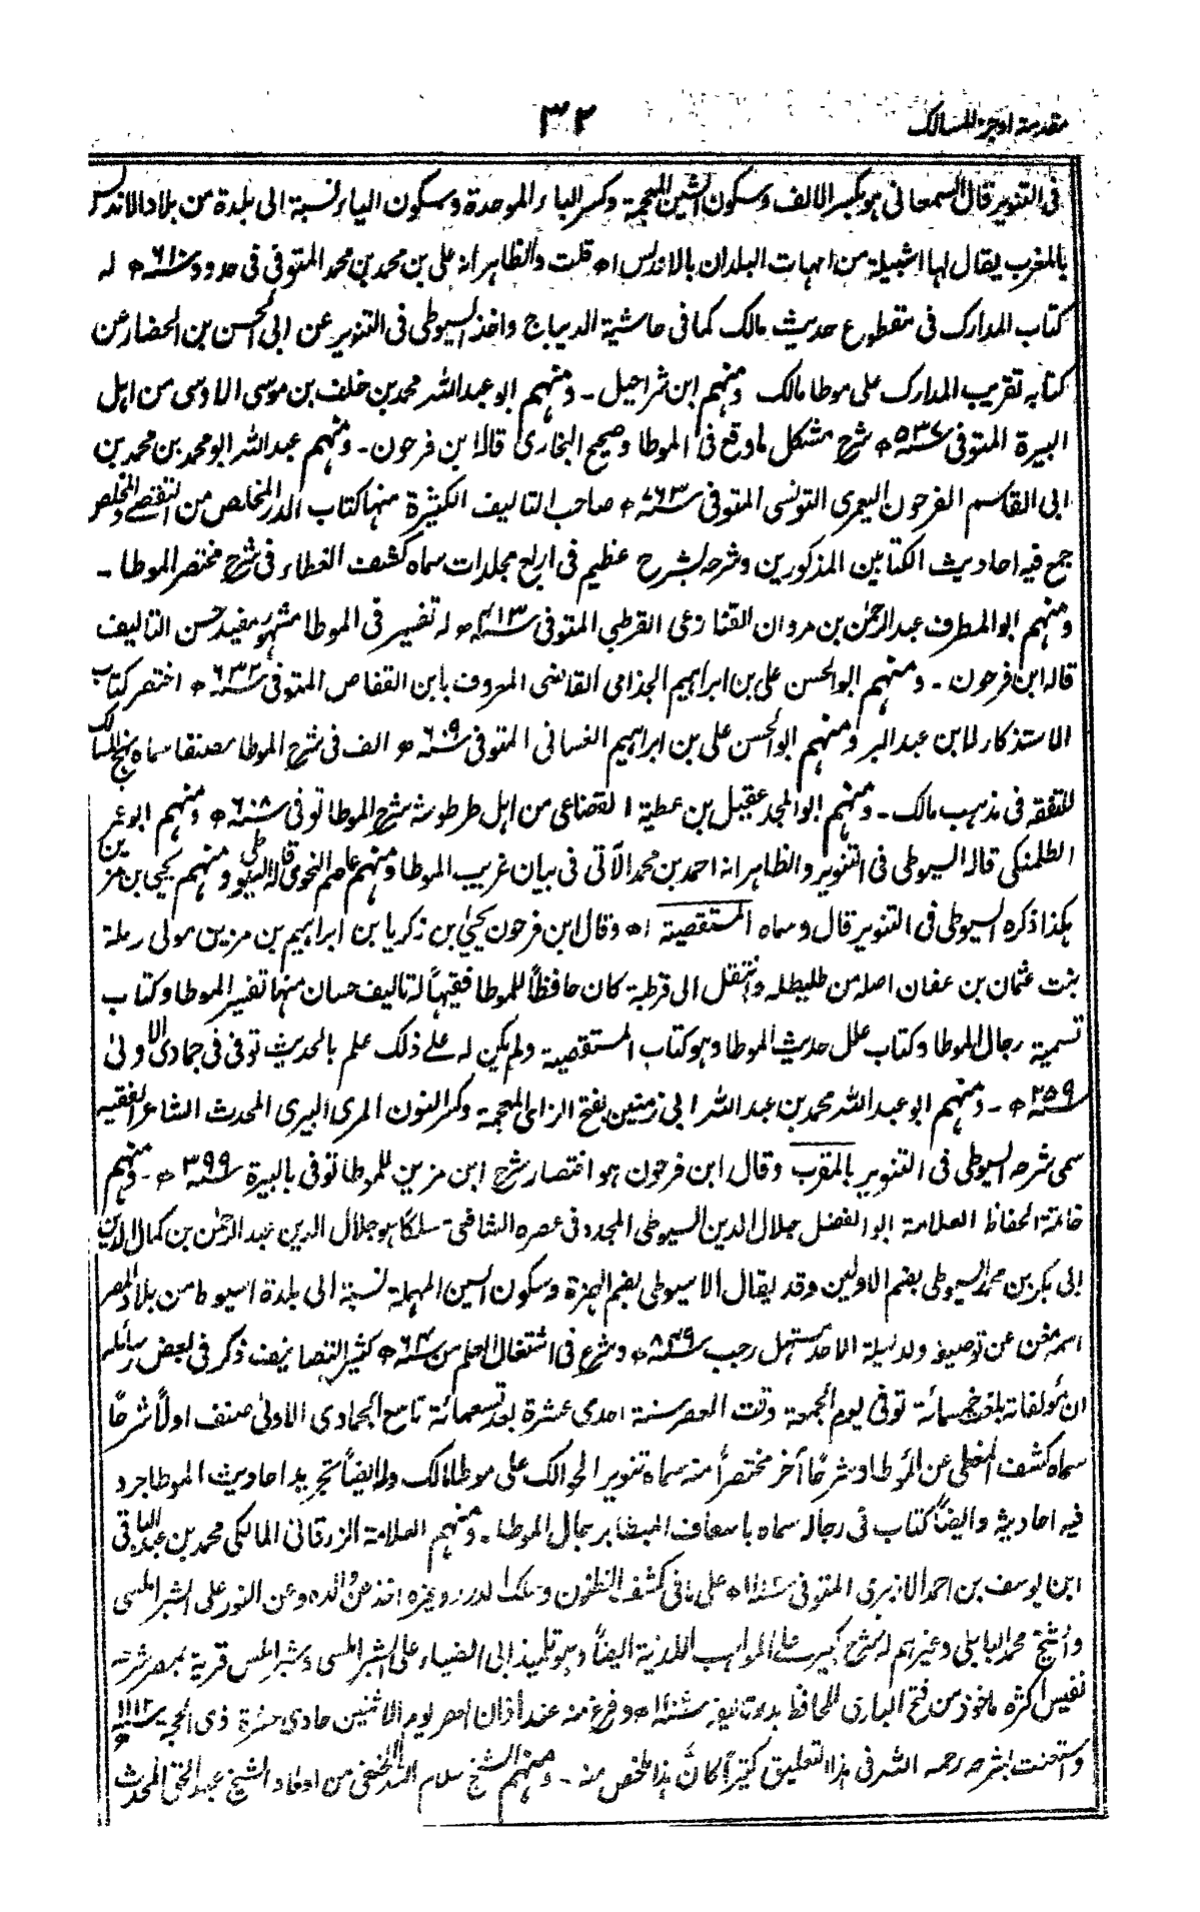 مقدمة اوجز المسالك
٣٢
فى التنوير قال السمعانى هو بكسر الالف وسكون الشين المعجمة وكسر الباء الموحدة وسكون الياء نسبة الى بلدة من بلاد الاندلس
بالمغرب يقال لها اشبيلة من امهات البلدان بالاندلس اه قلت والظاهر انه على بن محمد بن محمد المتوفى فى حدود سنة ٦١٠ه له
كتاب المدارك فى مقطوع حديث مالك كما فى حاشية الديباج واخذ السيوطى فى التنوير عن ابى الحسن بن الحضار عن
كتابه تقريب المدارك على موطا مالك ومنهم ابن شراحيل - ومنهم ابو عبد الله محمد بن خلف بن موسى الاوسى من اهل
البيرة المتوفى سنة ٥٣٧ه شرح مشكل ما وقع فى الموطا وصحيح البخارى قاله ابن فرحون - ومنهم عبد الله ابو محمد بن محمد بن
ابى القاسم الفرحون اليعمرى التونسى المتوفى سنة ٧٦٣ه صاحب التاليف الكثيرة منها كتاب الدر المخلص من التقصى والملخص
جمع فيه احاديث الكتابين المذكورين وشرحه بشرح عظيم فى اربع مجلدات سماه كشف الغطاء فى شرح مختصر الموطا -
ومنهم ابو المطرف عبد الرحمٰن بن مروان القنازعى القرطبى المتوفى سنة ٤١٣ه له تفسير فى الموطا مشهور مفيد حسن التاليف
قاله ابن فرحون - ومنهم ابو الحسن على بن ابراهيم الجذامى القاضى المعروف بابن القفاص المتوفى سنة ٦٣٢ه اختصر كتاب
الاستذكار لابن عبد البر ومنهم ابو الحسن على بن ابراهيم الغسانى المتوفى سنة ٦٠٩ه الف فى شرح الموطا مصنفا سماه نهج المسالك
للتفقه فى مذهب مالك - ومنهم ابو المجد عقيل بن عطية القضاعى من اهل طرطوشه شرح الموطا توفى سنة ٦٠٨ه ومنهم ابو عمر
الطلمنكى قاله السيوطى فى التنوير والظاهر انه احمد بن محمد الآتى فى بيان غريب الموطا ومنهم عاصم النحوى قاله السيوطى ومنهم يحيى بن مزين
هكذا ذكره السيوطى فى التنوير قال وسماه المستقصية اه وقال ابن فرحون يحيىٰ بن زكريا بن ابراهيم بن مزين مولى رملة
بنت عثمان بن عفان اصله من طليطله وانتقل الى قرطبة كان حافظاً للموطا فقيهاً له تاليف حسان منها تفسير الموطا وكتاب
تسمية رجال الموطا وكتاب علل حديث الموطا وهو كتاب المستقصية ولم يكن له على ذلك علم بالحديث توفى فى جمادى الاولىٰ
سنة ٢٥٩ه - ومنهم ابو عبد الله محمد بن عبد الله ابى زمنين بفتح الزاى المعجمة وكسر النون المرى البيرى المحدث الشاعر الفقيه
سمى شرحه السيوطى فى التنوير بالمقرب وقال ابن فرحون هو اختصار شرح ابن مزين للموطا توفى بالبيرة سنة ٣٩٩ه - ومنهم
خاتمة الحفاظ العلامة ابو الفضل جلال الدين السيوطى المجدد فى عصره الشافعى مسلكا هو جلال الدين عبد الرحمٰن بن كمال الدين
ابى بكر بن محمد السيوطى بضم الاولين وقد يقال الاسيوطى بضم الهمزة وسكون السين المهملة نسبة الى بلدة اسيوط من بلاد مصر
اسمه مغن عن توصيفه ولد ليلة الاحد مستهل رجب سنة ٨٤٩ه وشرع فى اشتغال العلم من سنة ٨٦٤ه كثير التصانيف ذكر فى بعض رسائله
ان مؤلفاته بلغ خمسمائة توفى يوم الجمعة وقت العصر سنة احدى عشرة بعد تسعمائة تاسع الجمادى الاولىٰ صنف اولاً شرحاً
سماه كشف المغطى عن الموطا وشرحاً آخر مختصراً منه سماه تنوير الحوالك على موطا مالك وله ايضاً تجريد احاديث الموطا جرد
فيه احاديثه وايضاً كتاب فى رجاله سماه باسعاف المبطا برجال الموطا - ومنهم العلامة الزرقانى المالكى محمد بن عبد الباقى
ابن يوسف بن احمد الازهرى المتوفى سنة ١١٢٢ه على ما فى كشف الظنون و وغيره اخذ عن والده وعن النور على الشبراملسى
والشيخ محمد البابلى وغيرهم له شرح كبير على المواهب اللدنية ايضاً وهو تلميذ ابى الضياء على الشبراملسى وشبراملس قرية بمصر شرحه
نفيس اكثره ماخوذ من فتح البارى للحافظ بدء تاليفه سنة ١١٠٩ه وفرغ منه عند اذان العصر يوم الاثنين حادى عشرة ذى الحجه سنة ١١١٢ه
واستعنت بشرحه رحمه الله فى هذا التعليق كثيراً كان هذا ملخص منه - ومنهم الشيخ سلام الله الحنفى من اولاد الشيخ عبد الحق المحدث